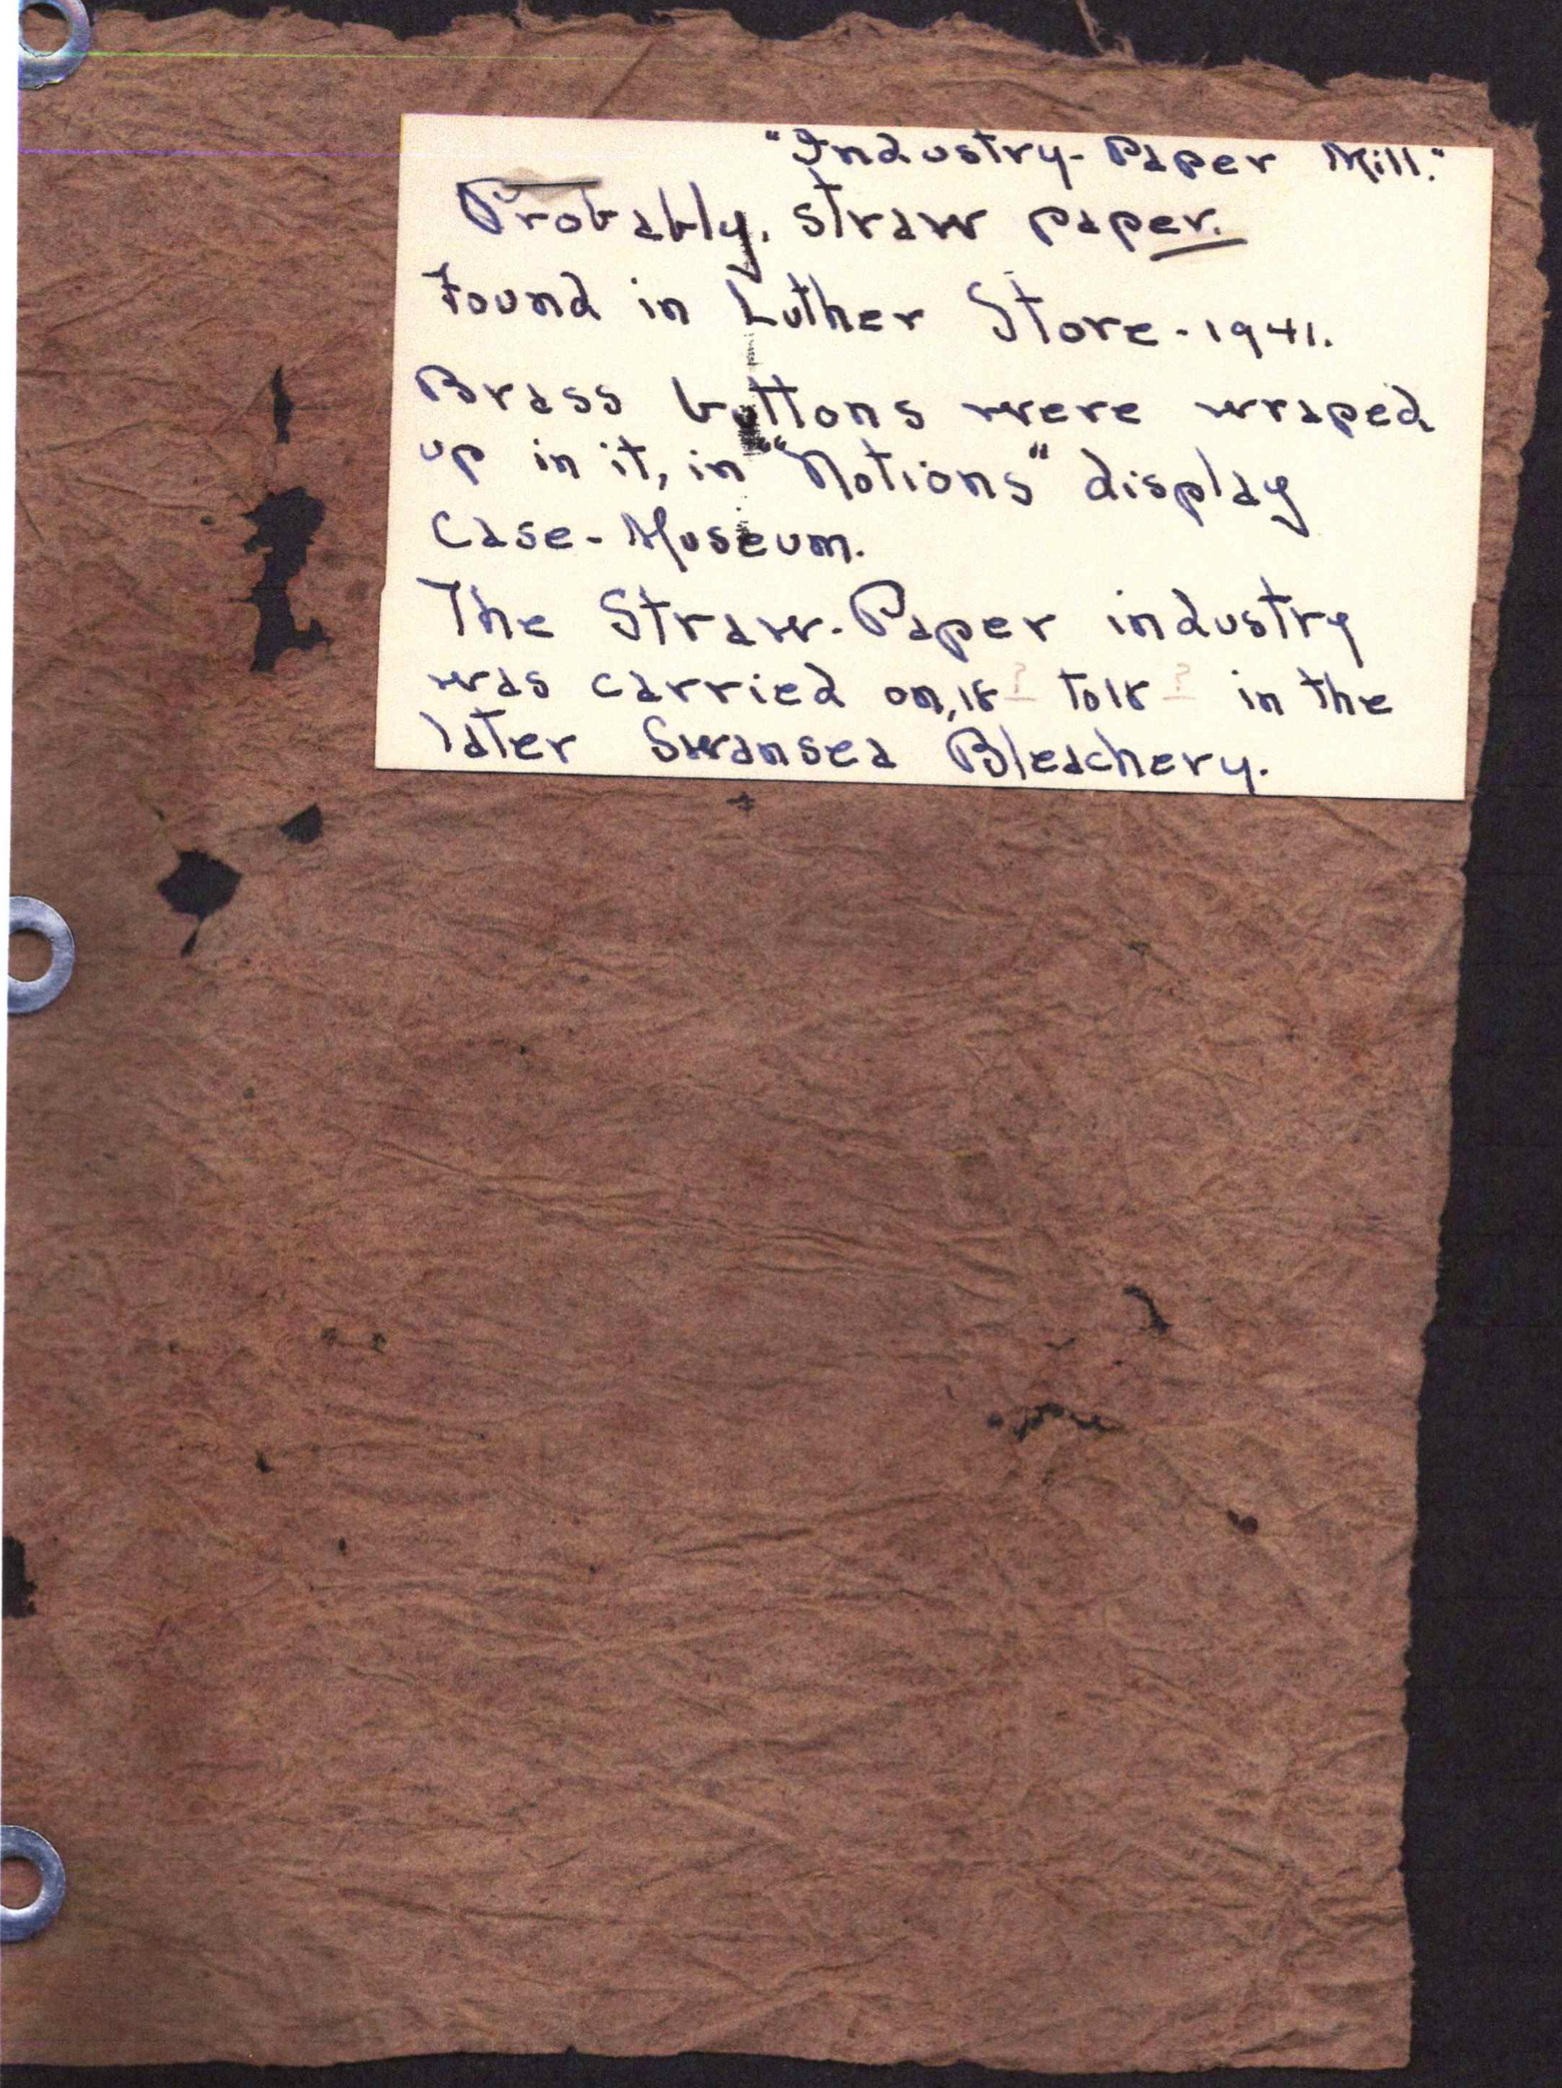 "Industry - Paper Mill."
Probably, straw paper.
Found in Luther Store - 1941.
Brass buttons were wraped
up in it, in "Notions" display
case - Museum.
The Straw-Paper industry
was carried on, 18 ? to 18 ? in the
later Swansea Bleachery.